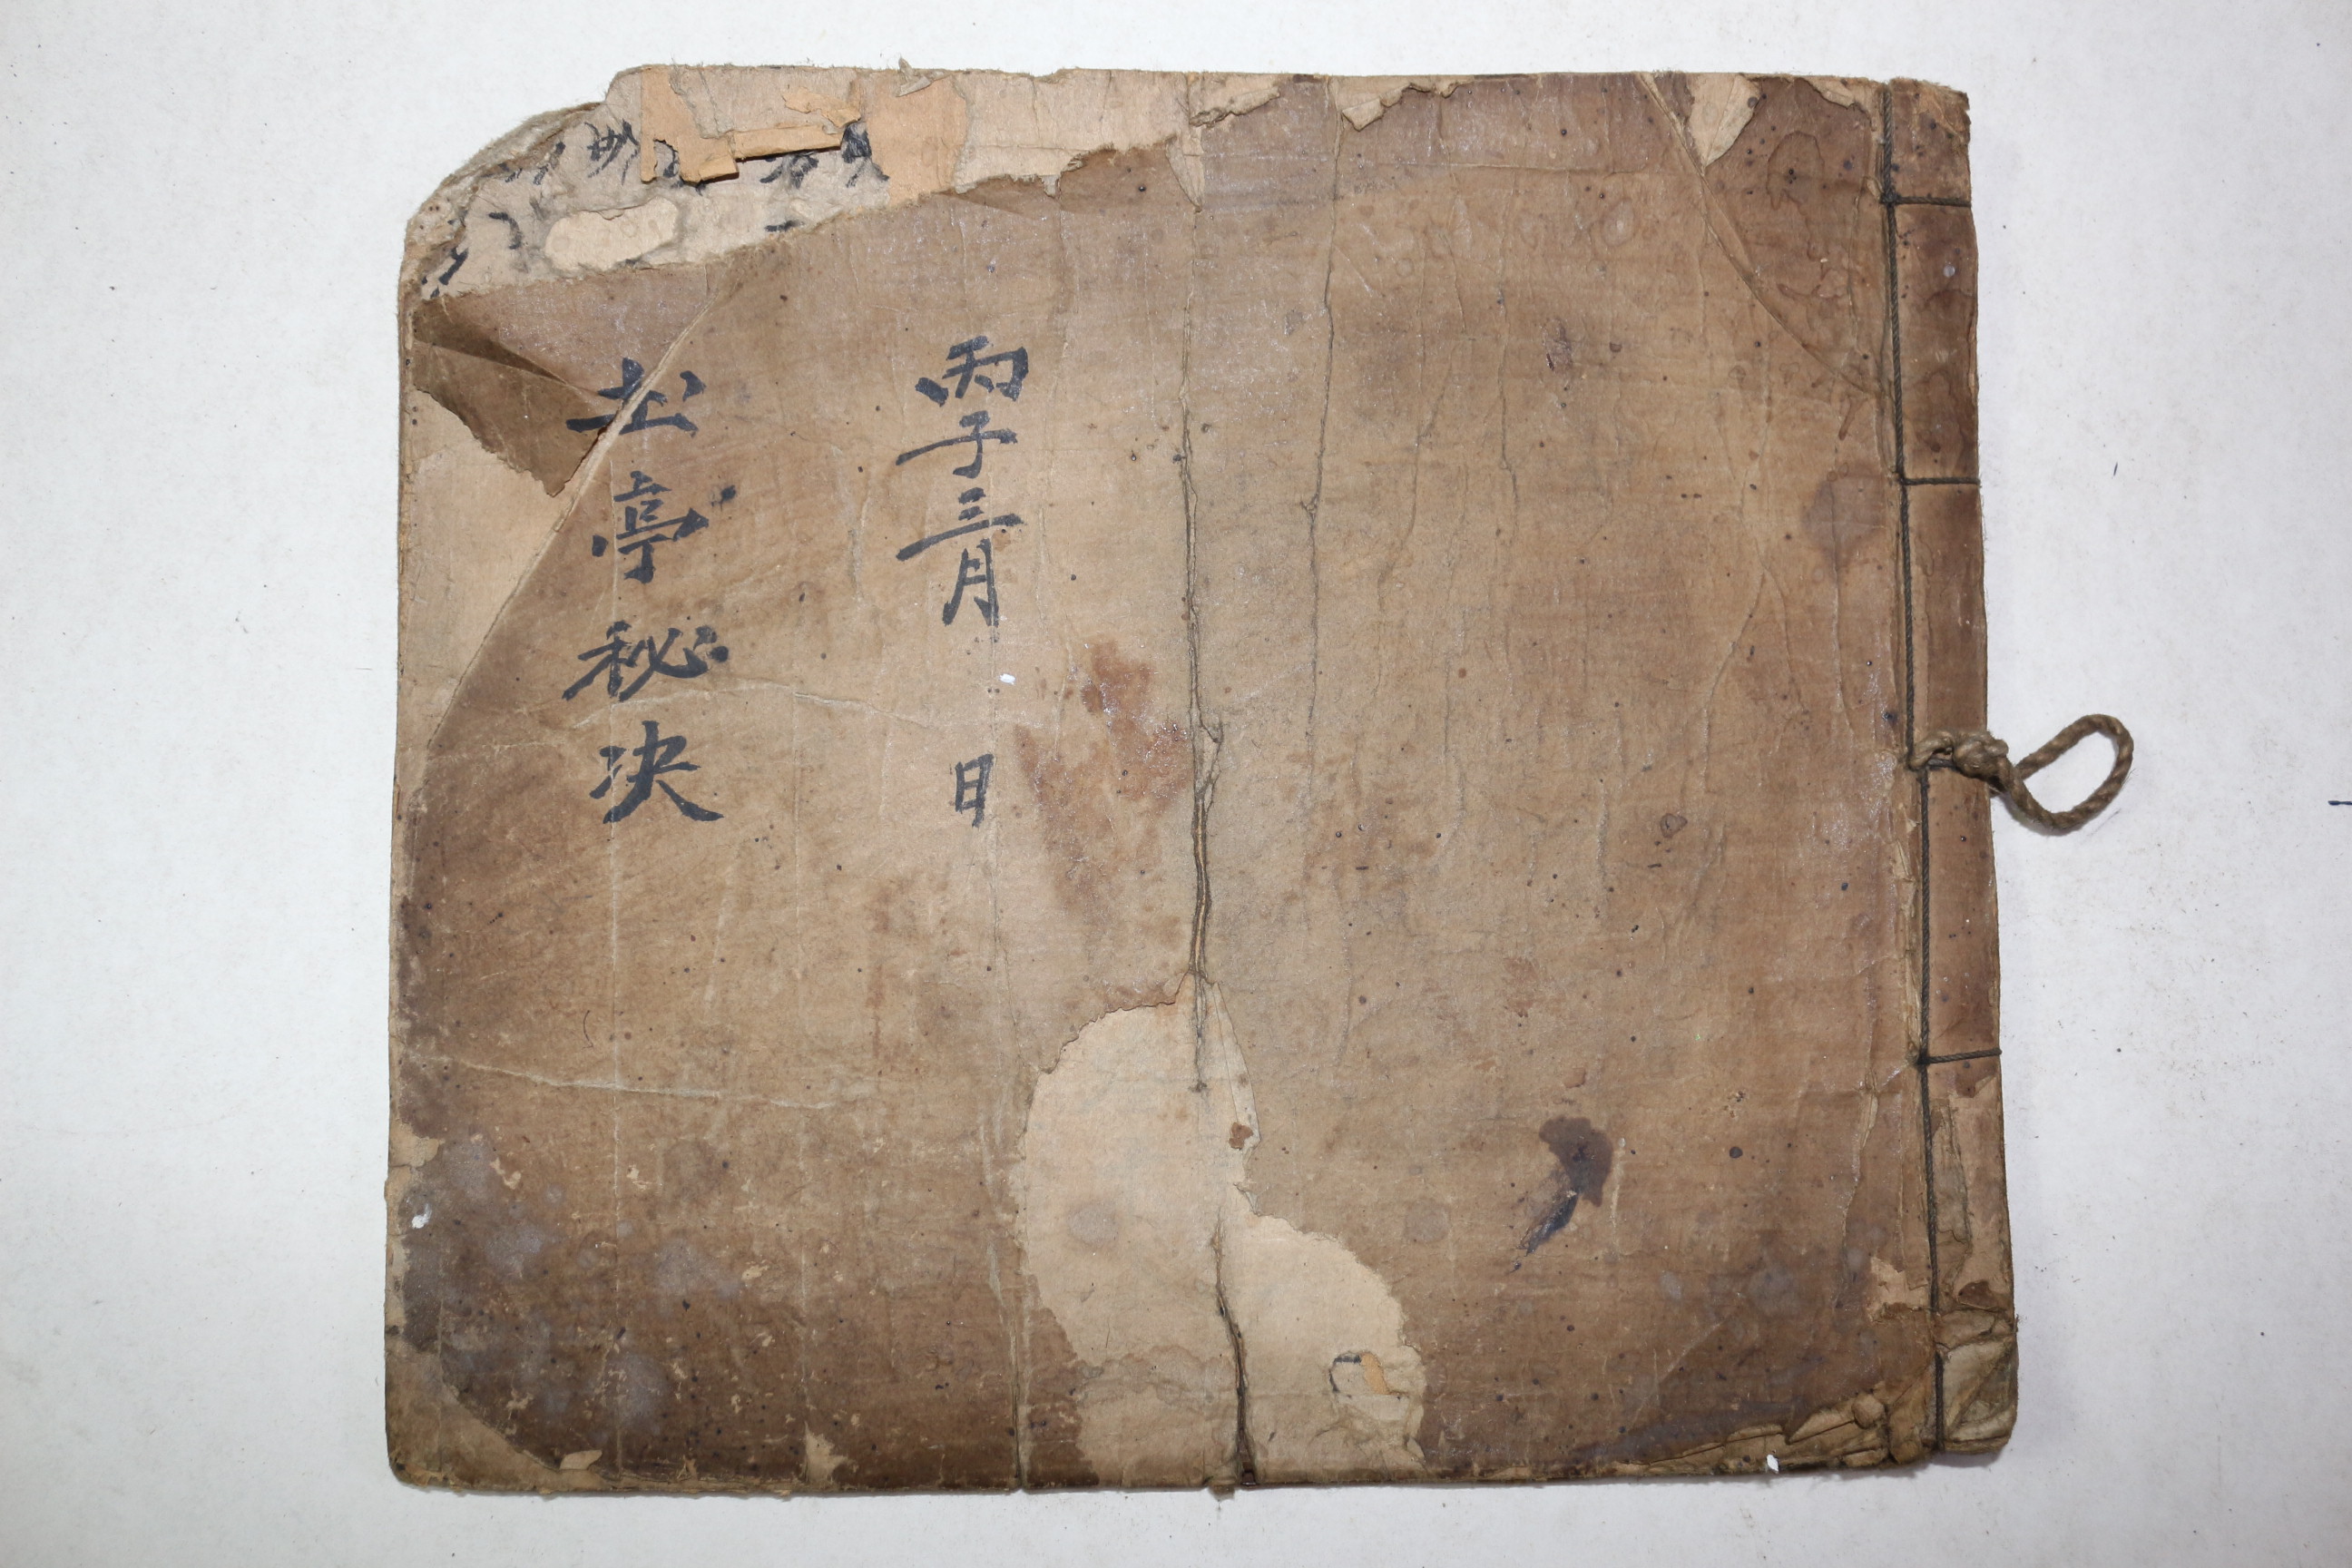 丙子三月 日
土亭秘决